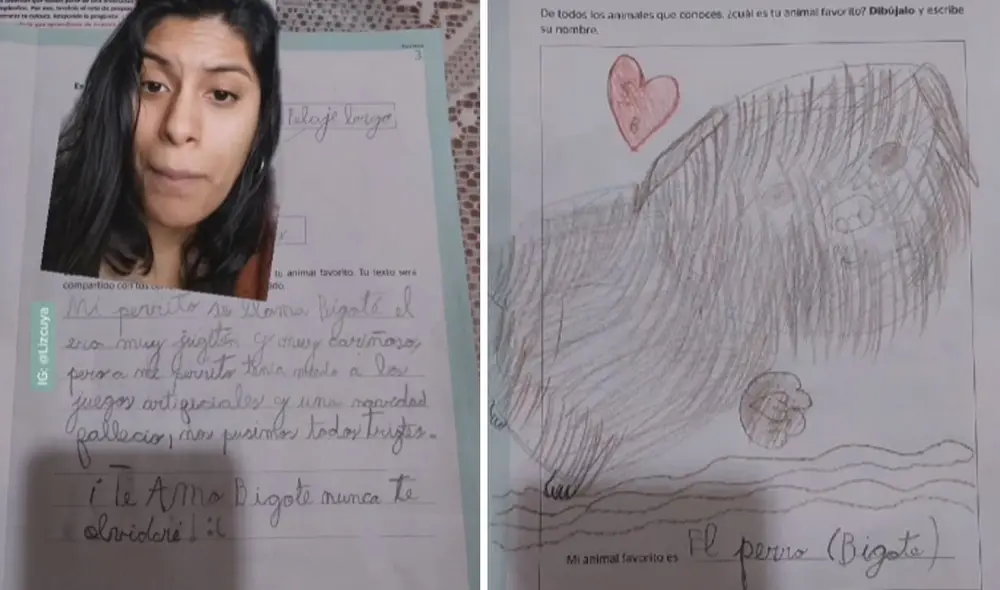 3
Pelaje largo
tu animal favorito. Tu texto será
compartido con
Mi perrito se llama Bigote el
era muy jugetón y muy cariñoso,
pero a mi perrito tenía miedo a los
juegos artificiales y una navidad
fallecio, nos pusimos todos tristes.
¡Te Amo Bigote nunca te
olvidaré! :(
IG: @Lizcuya
De todos los animales que conoces, ¿cuál es tu animal favorito? Dibújalo y escribe
su nombre.
Mi animal favorito es El perro (Bigote)